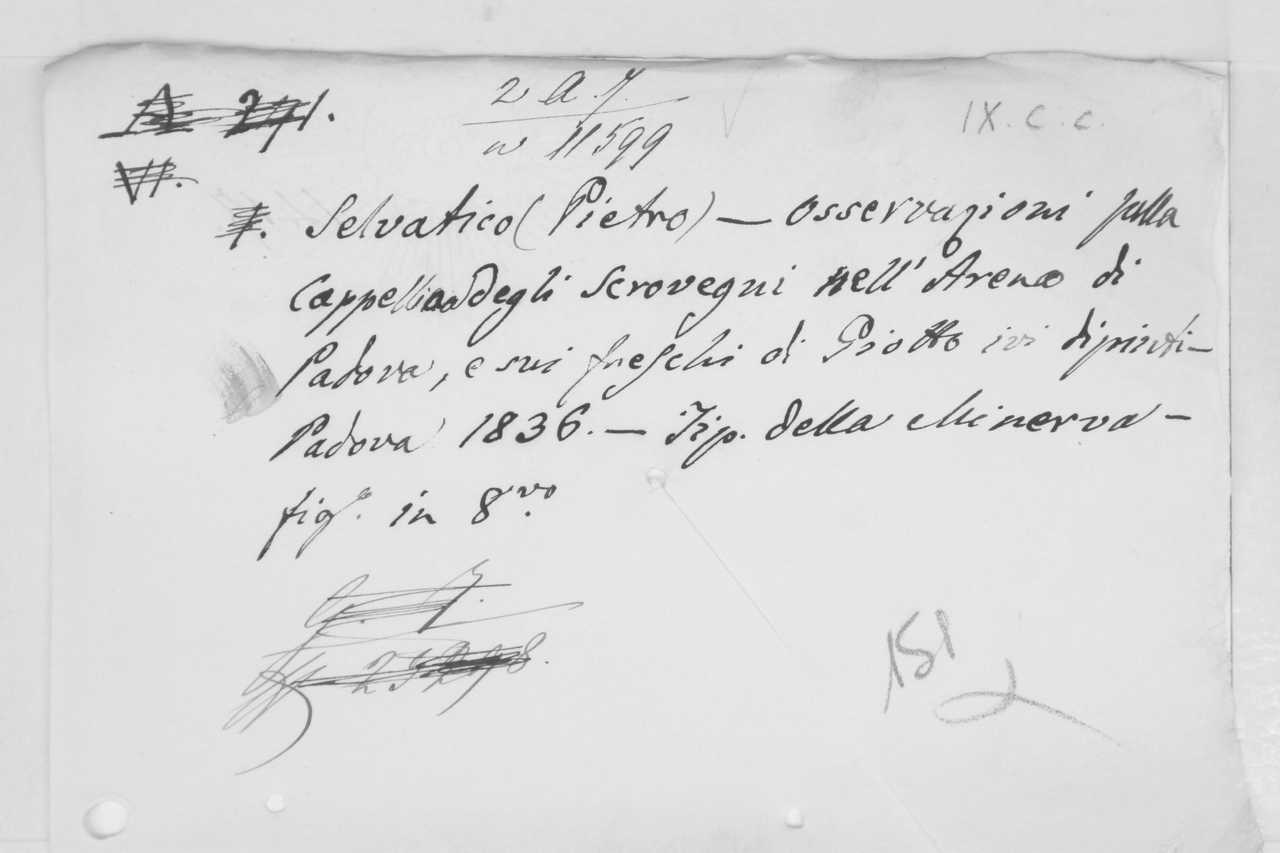 2 a. 7.
n 11599
IX. C. C.
VI.
Selvatico (Pietro) — Osservazioni sulla
Cappellina degli Scrovegni nell' Arena di
Padova, e sui freschi di Giotto ivi dipinti —
Padova 1836. — Tip. della Minerva —
figo. in 8.vo
151